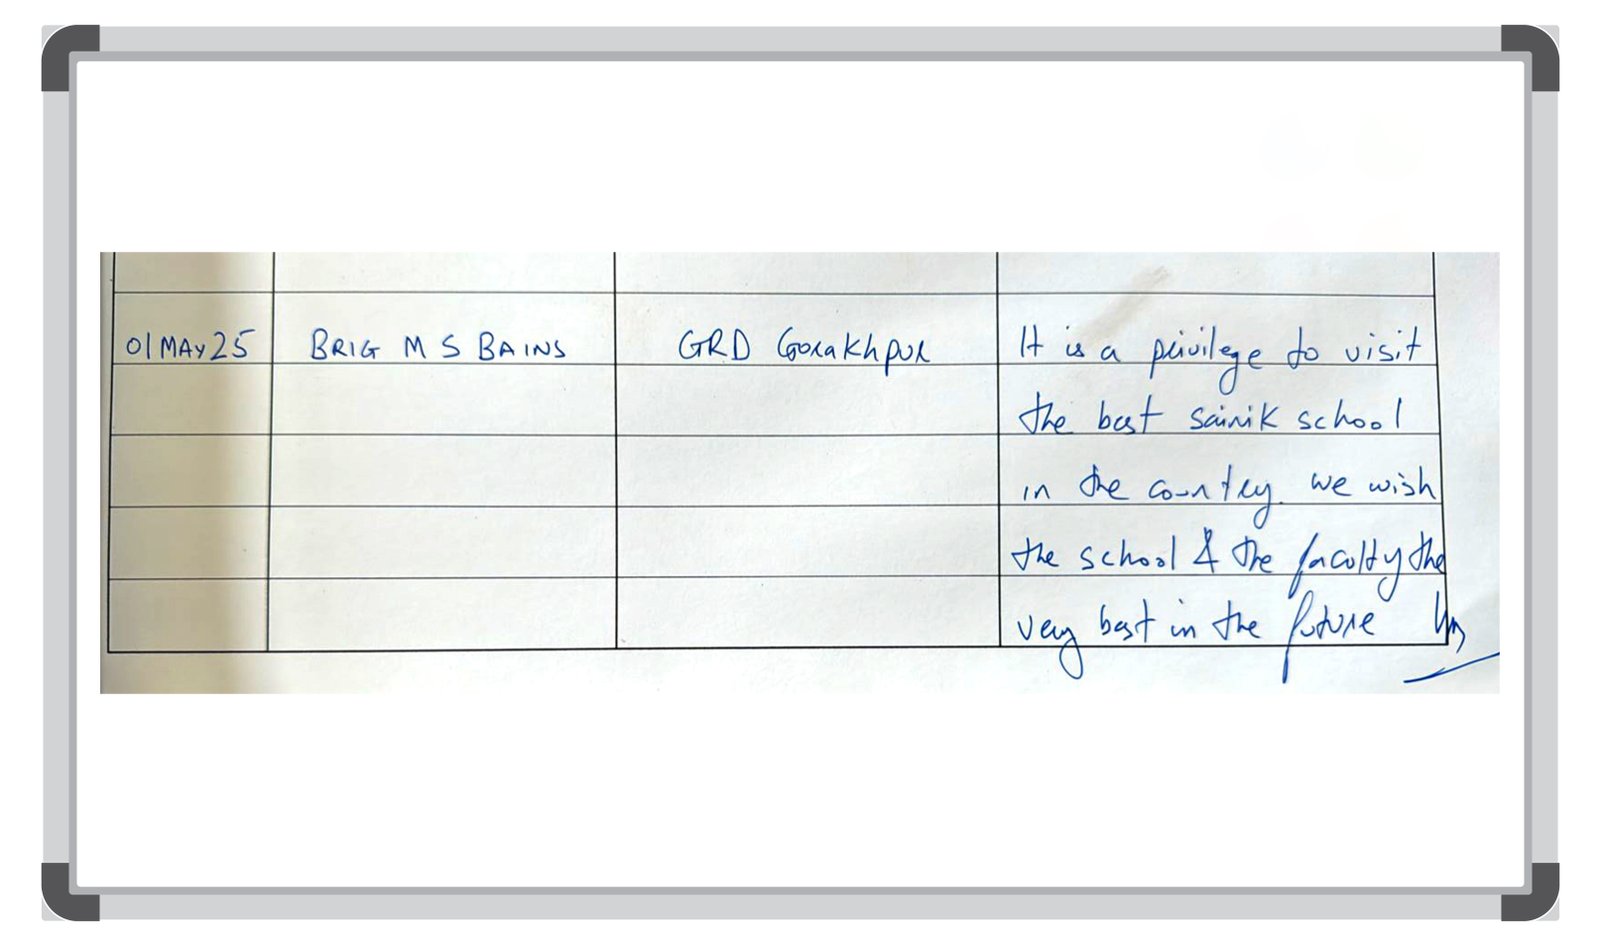 01 MAY 25 BRIG M S BAINS GRD Gorakhpur It is a privilege to visit
the best sainik school
in the country. we wish
the school & the faculty the
very best in the future